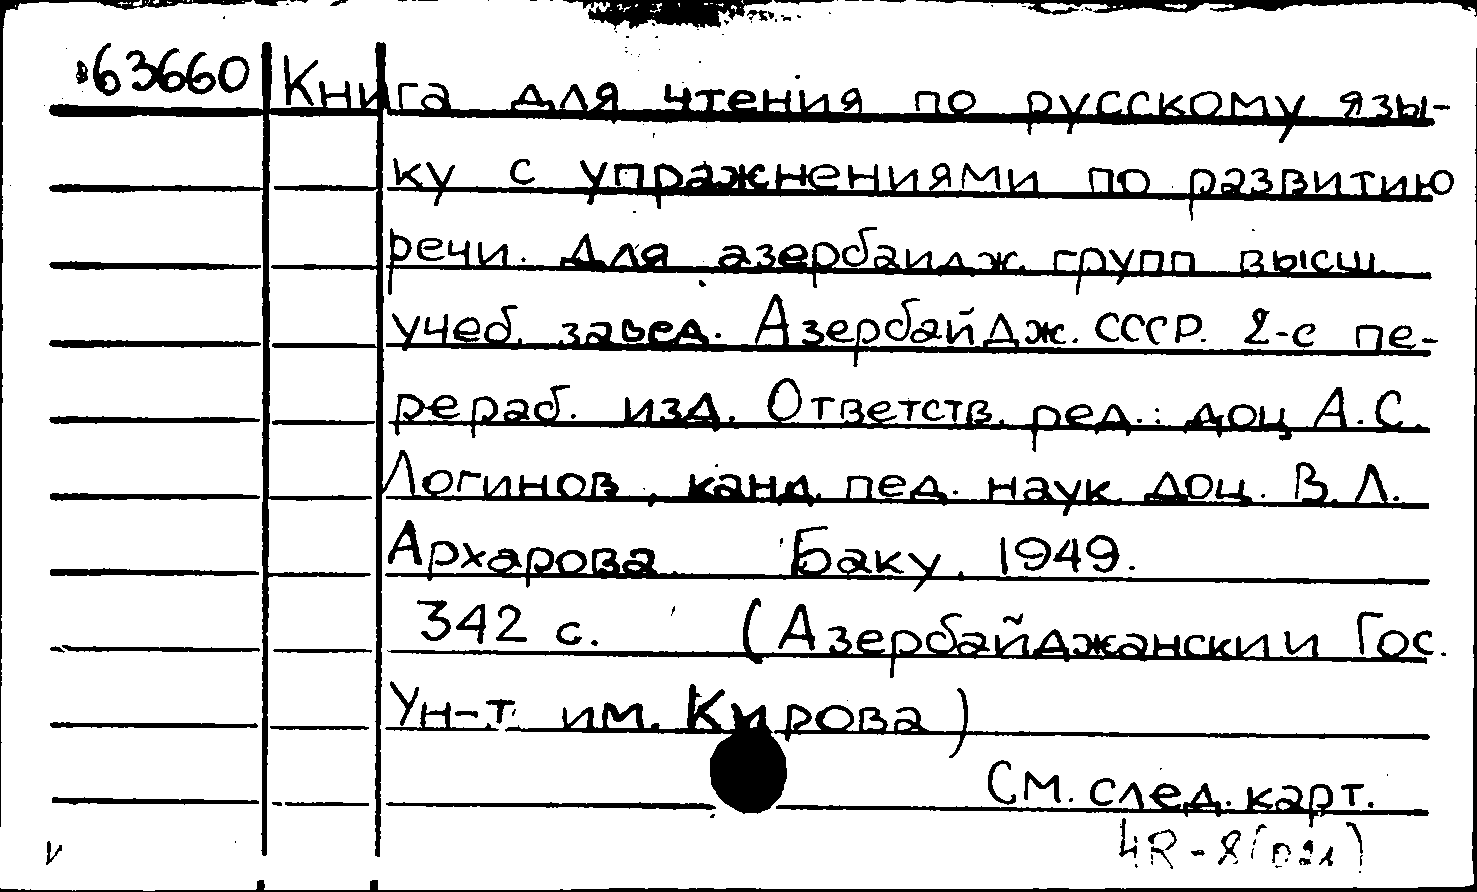 63660 Книга для чтения по русскому язы-
ку с упражнениями по развитию
речи. Для азербаидж. групп высш.
учеб. завед. Азербайдж. СССР. 2-е пе-
рераб. изд. Ответств. ред.: доц А.С.
Логинов, канд. пед. наук доц. В.Л.
Архарова Баку, 1949.
342 с. (Азербайджанский Гос.
Ун-т им. Кирова)
См. след. карт.
4R-8